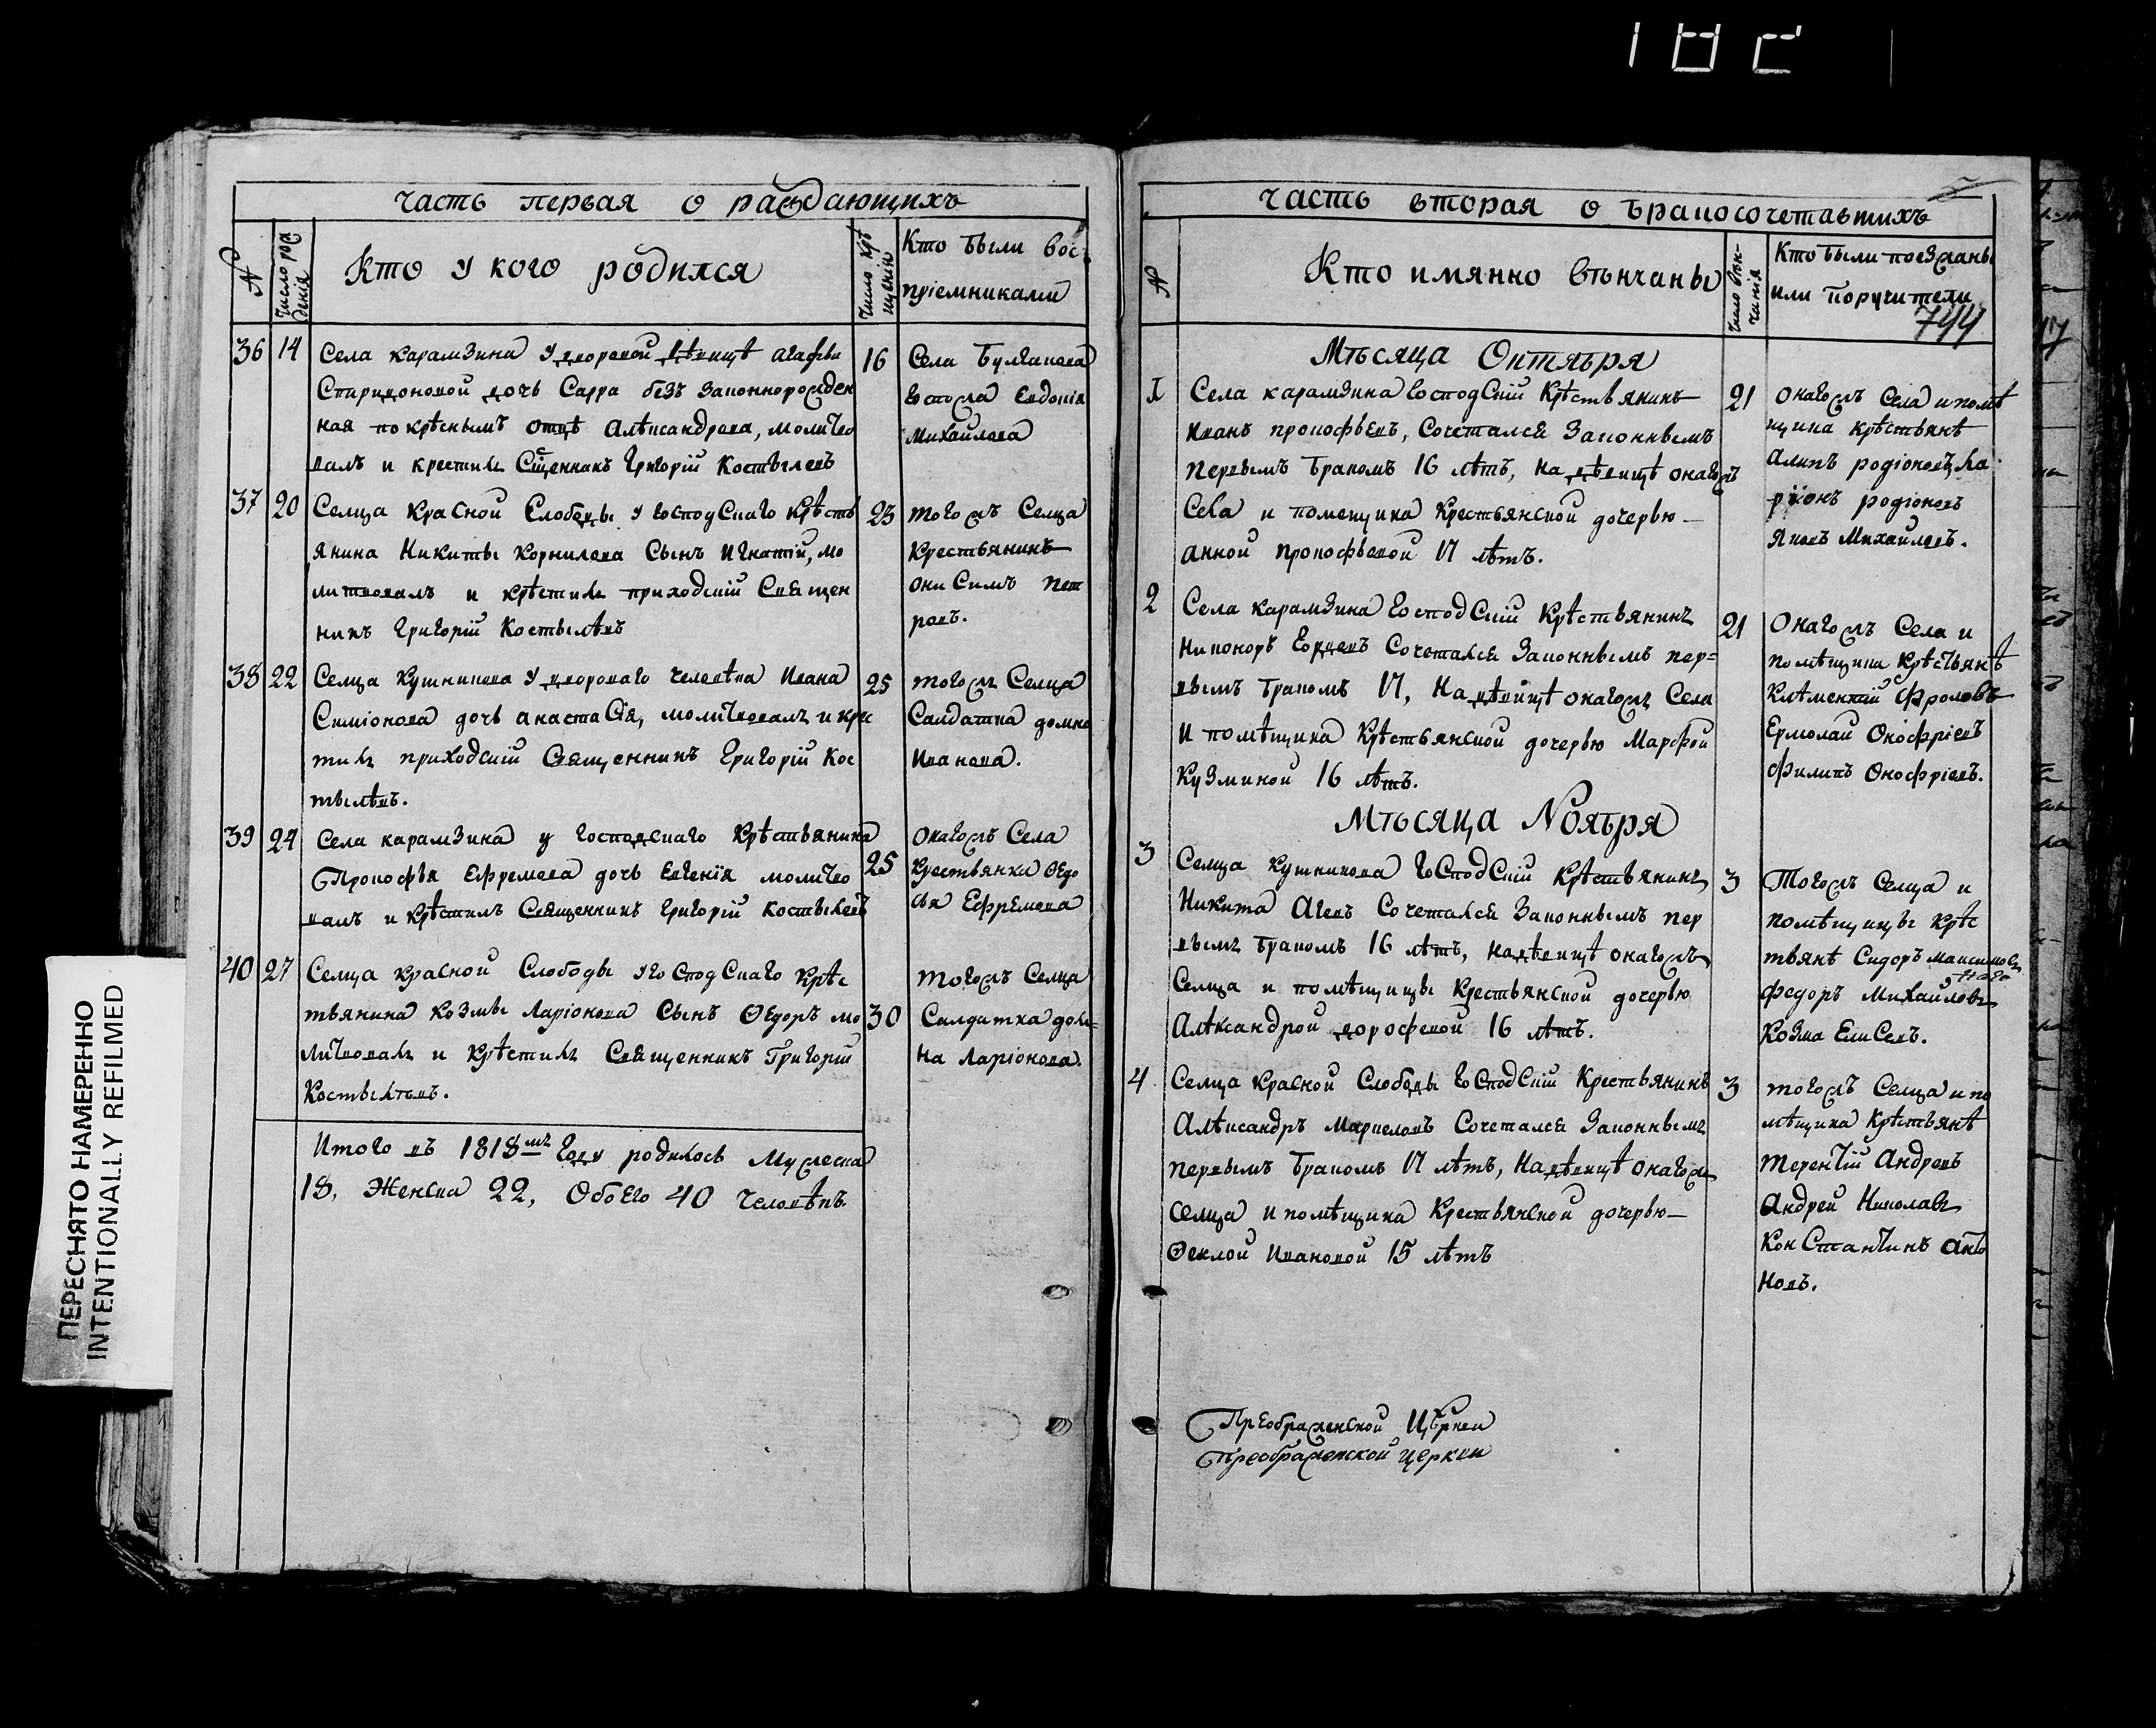 часть первая о раждающихъ
№
Число рож
денія
Кто у кого родился
Число кре
щенія
Кто были вос-
пріемниками
36 14 Села карамзина у дворовой дѣвицѣ агафьи
Спиридоновой дочь Сарра безъ законнорожден
ная по крѣсным отцѣ Алѣксандрова, молитво
валъ и крестилъ Сщенникъ Григорій Костылевъ
16 Села Булгакова
господа Евдокія
Михайлова
37 20 Селца Красной Слободы у господскаго Крѣсть
янина Никиты Корнилова Сынъ Игнатій, мо
литвовалъ и крѣстилъ приходскій Священ
никъ Григорій Костылѣвъ
23 тогожъ Селца
Крестьянинъ
онисимъ пет
ровъ.
38 22 Селца Кушникова у двороваго человѣка Ивана
Симіонова дочь анастасія, молитвовалъ и крес
тилъ приходскій Священникъ Григорій Кос
тылѣвъ.
25 тогожъ Селца
Салдатка домна
Иванова.
39 24 Села карамзина у господскаго Крѣстьянина
Прокофья Ефремова дочь Евгенія молитво
валъ и крѣстилъ Священникъ Григорій Костылевъ
25 онагожъ Села
Крестьянки Ѳедо
сья Ефремова
40 27 Селца красной Слободы у господскаго крѣс
тьянина козмы Ларіонова Сынъ Ѳедоръ мо
литвовалъ и крѣстилъ Священникъ Григорій
Костылѣвъ.
30 тогожъ Селца
Салдатка дом-
на Ларіонова.
Итого въ 1818мъ Году родилось Мужеска
18, Женска 22, Обоего 40 человѣкъ.
часть вторая о бракосочетавшихъ
№
Кто имянно вѣнчаны
Число вѣн-
чанія
Кто были поезжаны
или поручители
744
Мѣсяца Октября
1 Села карамзина господскій Крѣстьянинъ
Иванъ прокофьевъ, Сочетался Законнымъ
первымъ бракомъ 16 лѣтъ, на дѣвицѣ онагожъ
Села и помещика Крестьянской дочерью
анной прокофьевой 17 лѣтъ.
21 онагожъ Села и помѣ
щика крѣстьянѣ
Алипъ родіоновъ, Ла
ріонъ родіоновъ
Яковъ Михайловъ.
2 Села карамзина господскій Крѣстьянинъ
Никоноръ Гордевъ Сочетался Законнымъ пер-
вымъ бракомъ 17, на дѣвицѣ онагожъ Села
и помѣщика Крѣстьянской дочерью Марфой
Кузминой 16 лѣтъ.
21 Онагожъ Села и
помѣщика Крѣстьянѣ
Климентій Фроловъ
Ермолай Онофріевъ
Филипъ Онофріевъ.
Мѣсяца Ноября
3 Селца кушникова господскій Крѣстьянинъ
Никита Агеевъ Сочетался Законнымъ пер
вымъ бракомъ 16 лѣтъ, на дѣвицѣ онагожъ
Селца и помѣщицы Крестьянской дочерью
Алѣксандрой дорофевой 16 лѣтъ.
3 Тогожъ Селца и
помѣщицы Крѣс
тьянѣ Сидоръ Максимовъ
Федоръ Михайловъ
Козма Елисевъ.
4 Селца красной Слободы господскій Крестьянинъ
Алѣксандръ Маркеловъ Сочетался Законнымъ
первымъ бракомъ 17 лѣтъ, на дѣвицѣ онагожъ
селца и помѣщика Крестьянской дочерью
Ѳеклой Ивановой 15 лѣтъ
3 тогожъ Селца и по
мѣщика Крѣстьянѣ
терентій Андревъ
Андрей Николавъ
Константинъ анто
новъ.
Преображенской Церкви
Преображенской церкви
ПЕРЕСНЯТО НАМЕРЕННО
INTENTIONALLY REFILMED